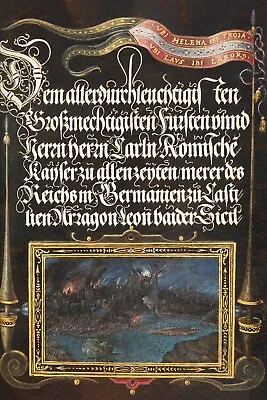 VBI HELENA IBI TROIA
VBI LAVS IBI LABOR
Dem allerdurchleuchtigisten
Großmechtigisten Fursten vnnd
Herrn herrn Carln Römische
Kayser zu allen zeyten merer des
Reichs in Germanien zu Casti
lien Arragon leon baider Sicil